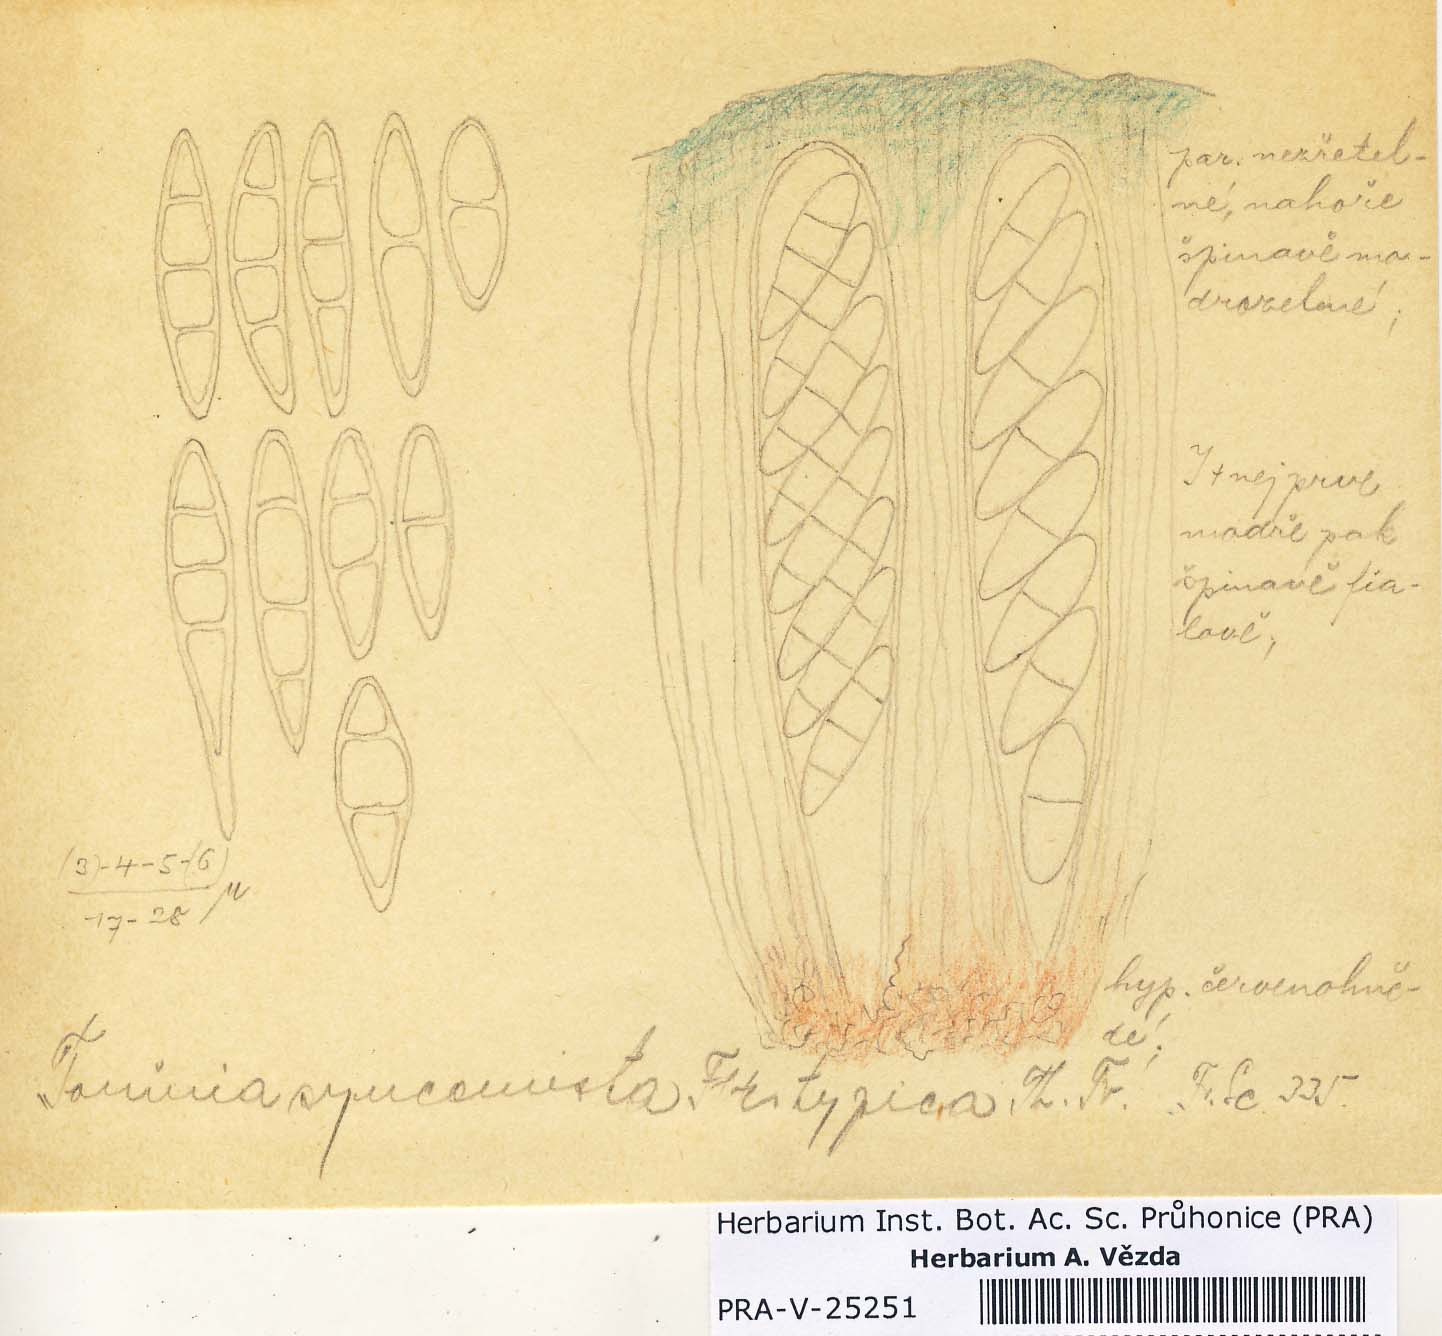 par. nezřetel-
né, nahoře
špinavě mo-
drozelené;
I + nejprve
modře pak
špinavě fia-
lově;
(3)-4-5-(6)
17-28 μ
hyp. červenohně-
dé!
Toninia syncomista typica Th. Fr. F. Sc. 335.
Herbarium Inst. Bot. Ac. Sc. Průhonice (PRA)
Herbarium A. Vězda
PRA-V-25251